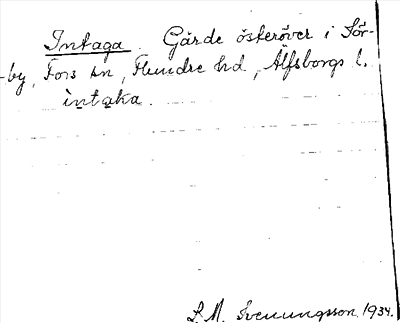 Intaga. Gärde österöver i Sör-
-by, Fors sn, Flundre hd, Älfsborgs l.
ìntaka.
S. M. Svenungsson 1934.